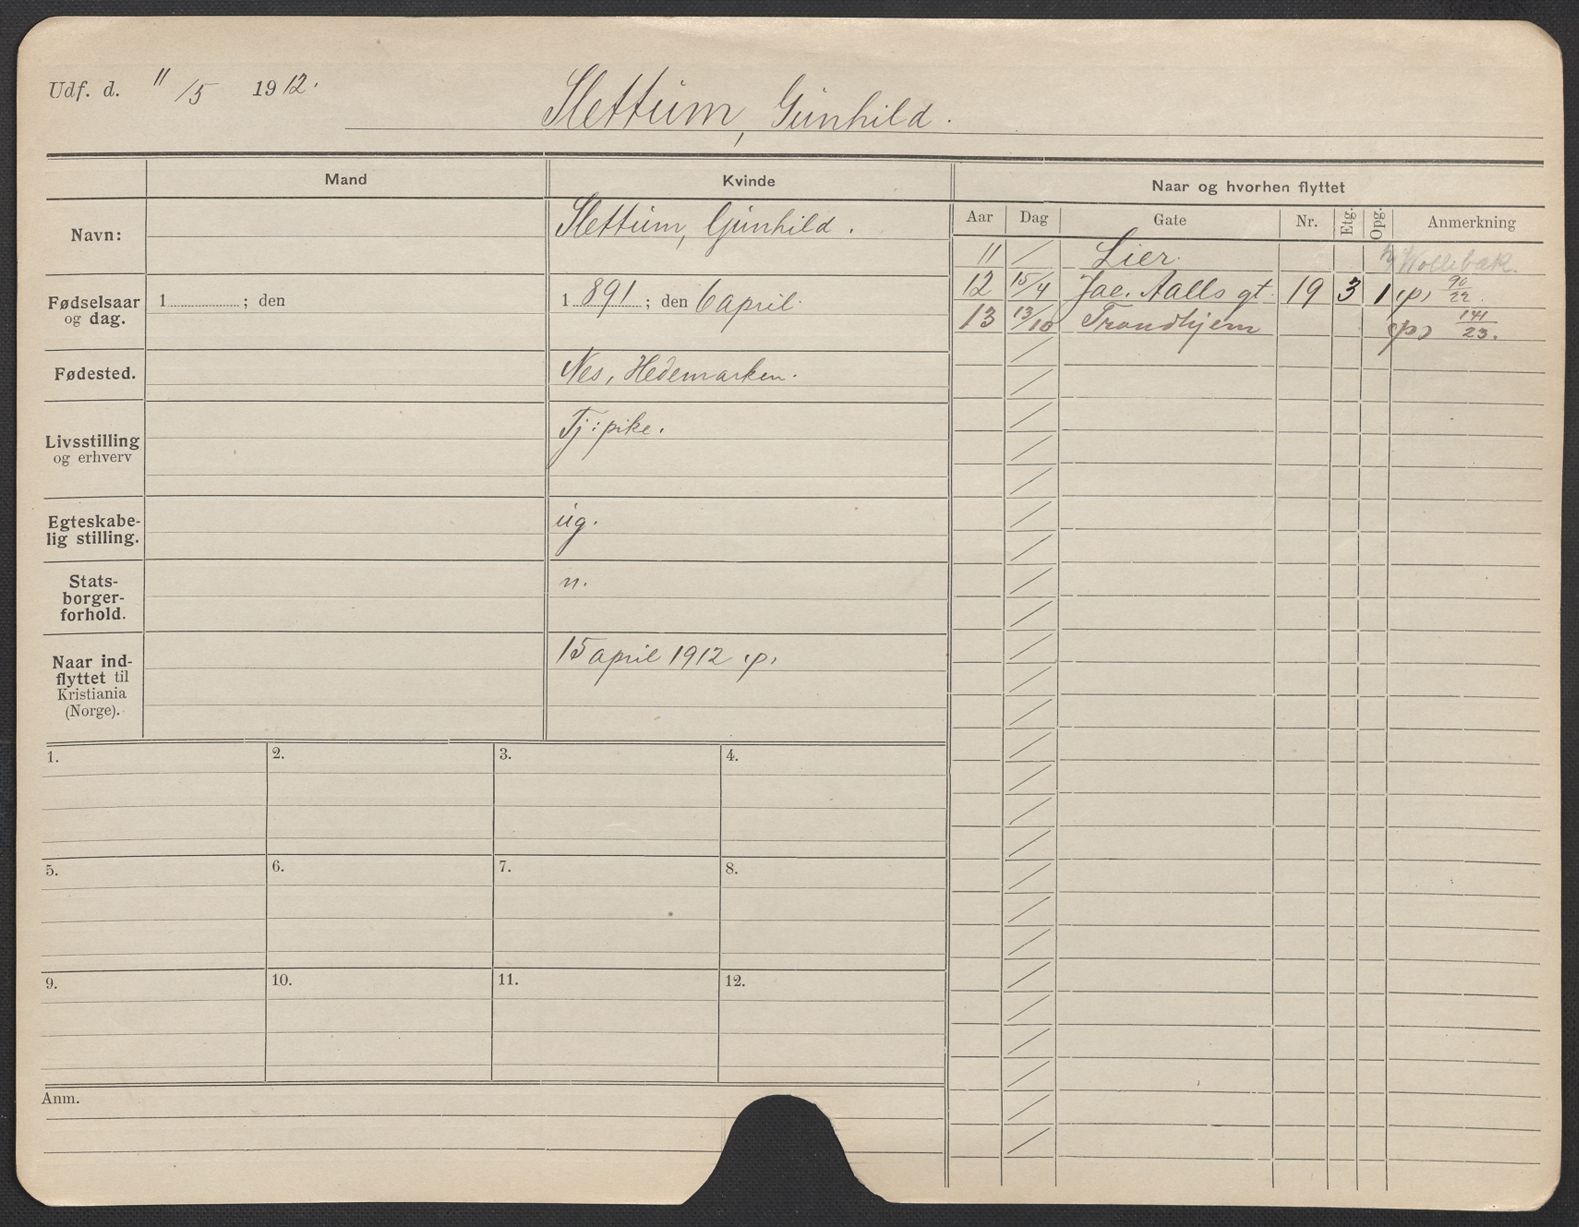 Udf. d. 11/5 1912.
Slettum, Gunhild.
Mand Kvinde Naar og hvorhen flyttet
Aar Dag Gate Nr. Etg. Opg. Anmerkning
Navn: Slettum, Gunhild.
11 / Lier.
Fødselsaar og dag. 1 ; den 1 891 ; den 6 april.
12 15/4 Jac. Aalls gt. 19 3 1 (p) 90/22.
13 13/10 Trondhjem (p) 141/23.
Fødested. Nes, Hedemarken.
Livsstilling og erhverv Tj: pike.
Egteskabe-
lig stilling. ug.
Stats-
borger-
forhold. n.
Naar ind-
flyttet til
Kristiania
(Norge). 15 april 1912 p.
1. 2. 3. 4.
5. 6. 7. 8.
9. 10. 11. 12.
Anm.